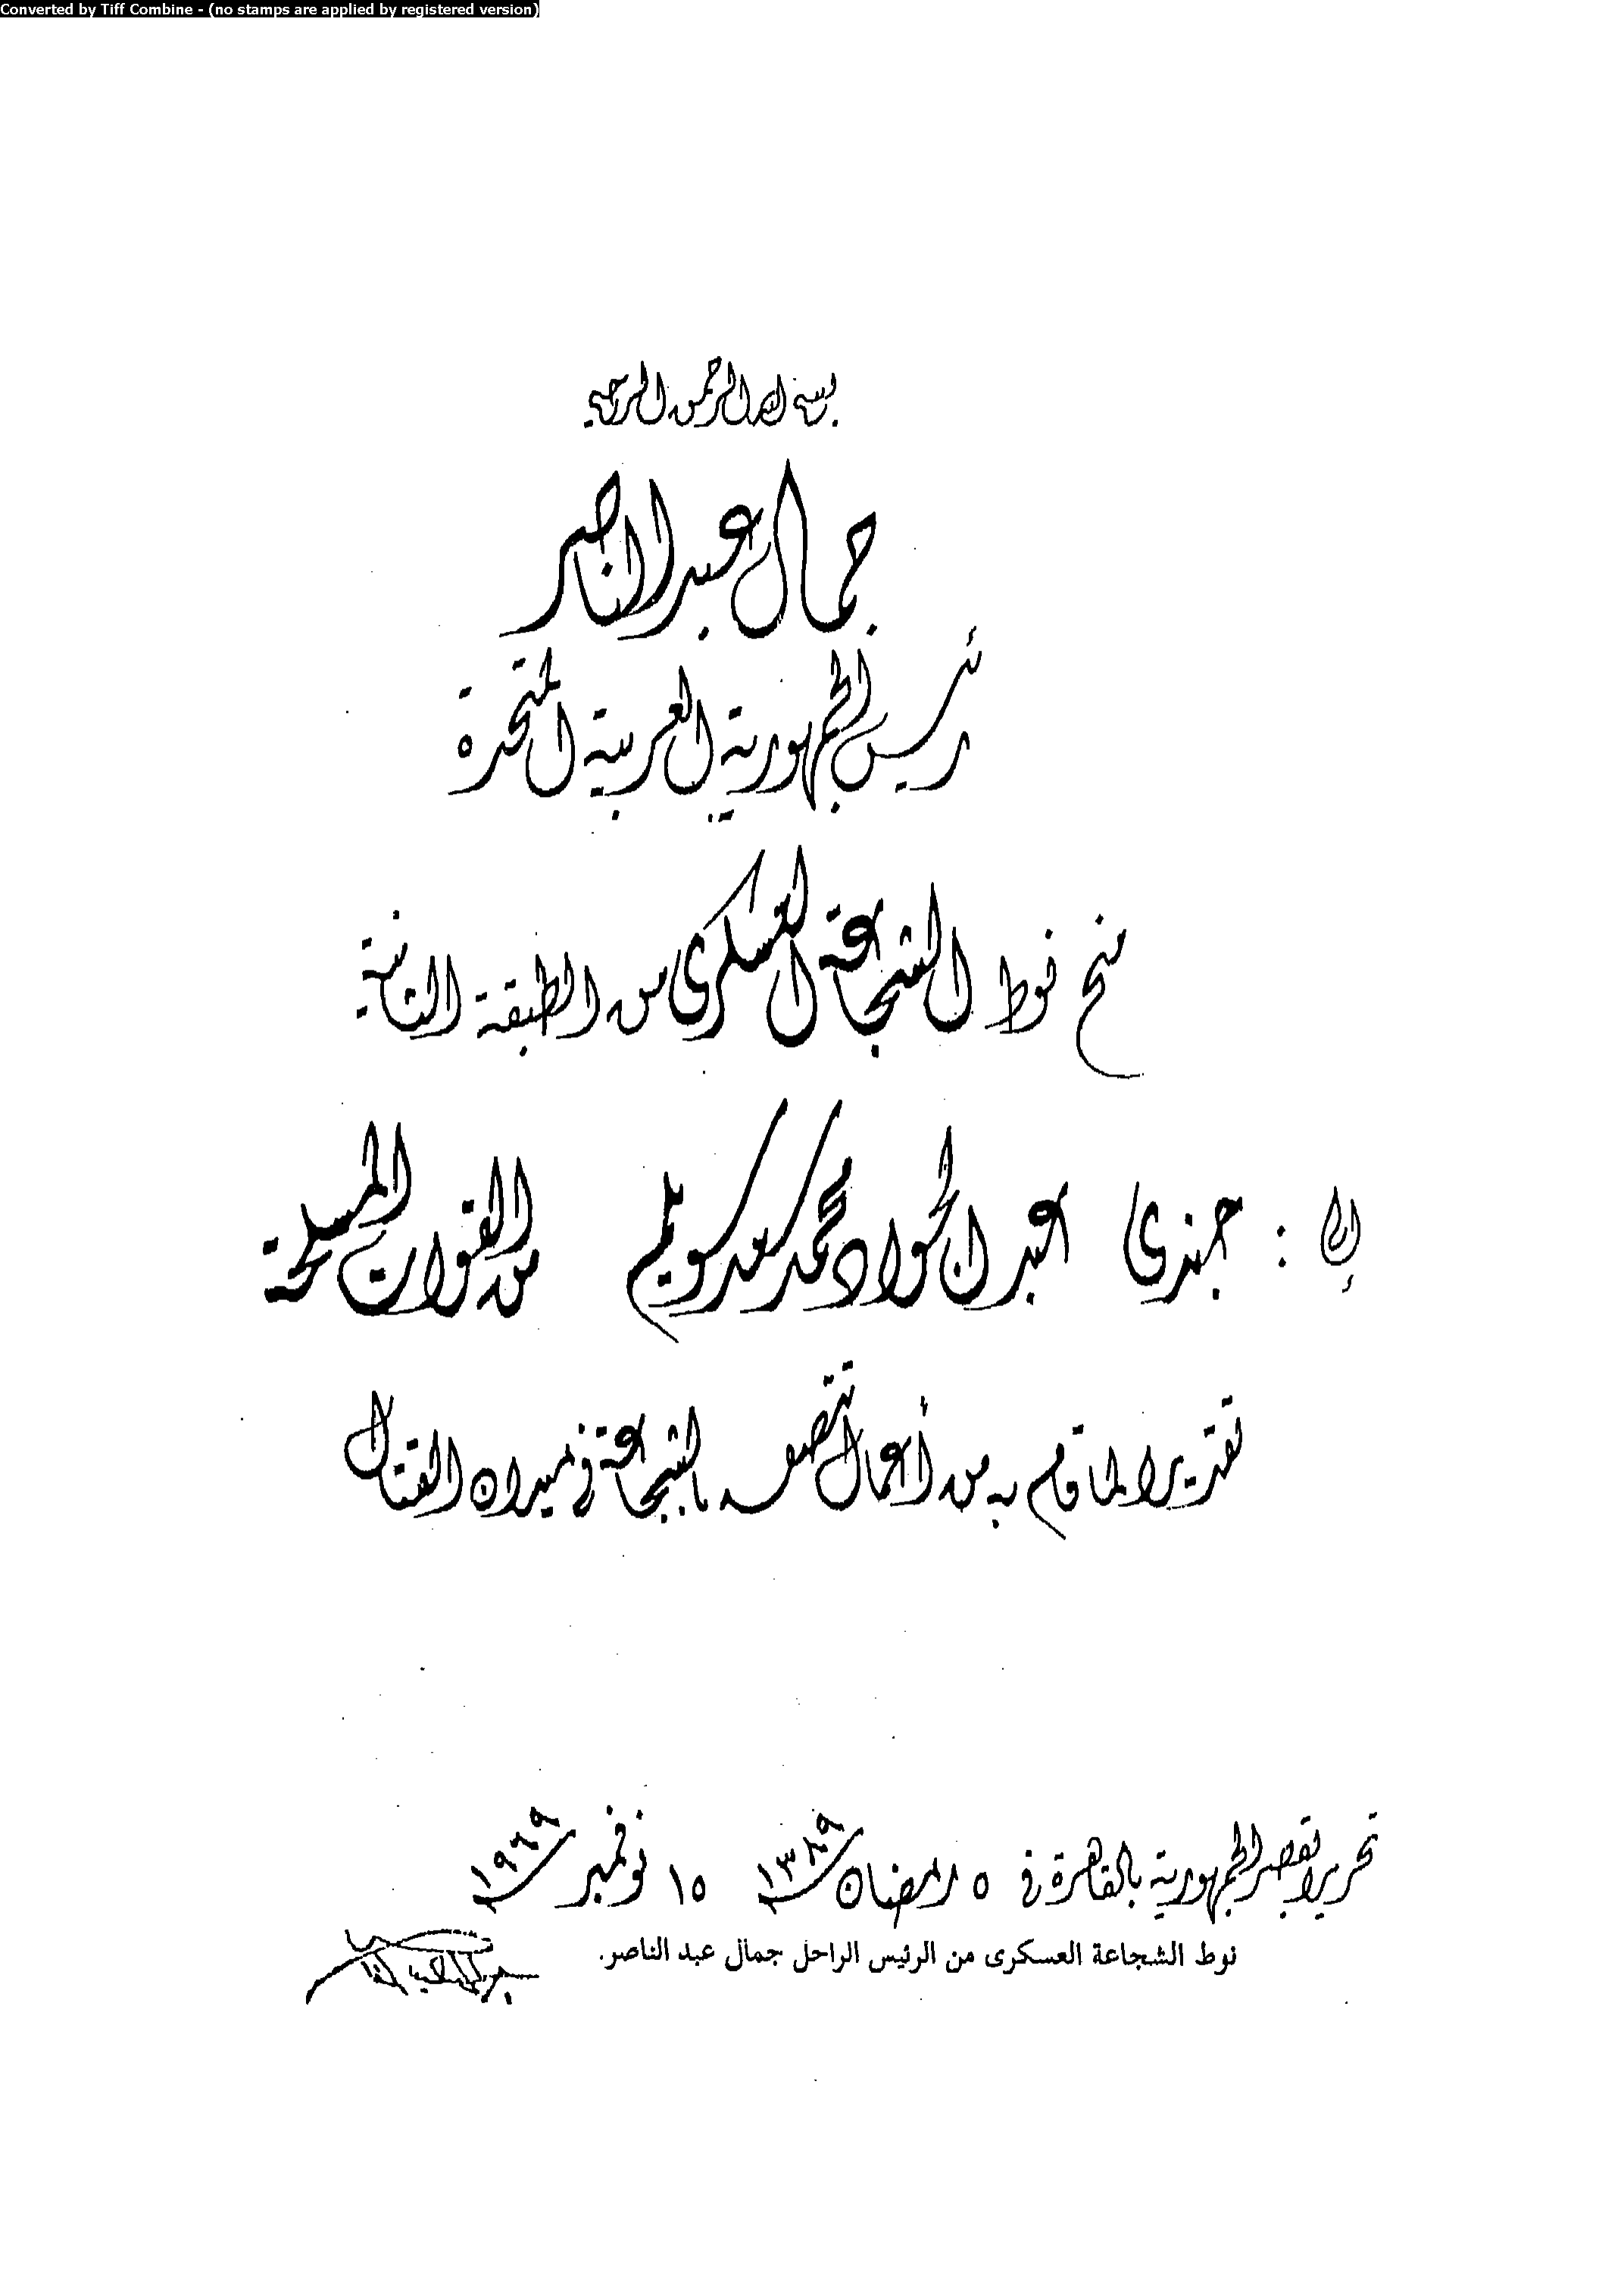 Converted by Tiff Combine - (no stamps are applied by registered version)
بسم الله الرحمن الرحيم
جمال عبد الناصر
رئيس الجمهورية العربية المتحدة
منح نوط الشجاعة العسكرى من الطبقة الثانية
إلى : جندى عبد الجواد محمد سعد سويلم من القوات المسلحة
تقديرا لما قام به من أعمال تتصف بالشجاعة فى ميدان القتال
تحريرا بقصر الجمهورية بالقاهرة فى ٥ رمضان ١٣٨٩ ١٥ نوفمبر ١٩٦٩
نوط الشجاعة العسكرى من الرئيس الراحل جمال عبد الناصر.